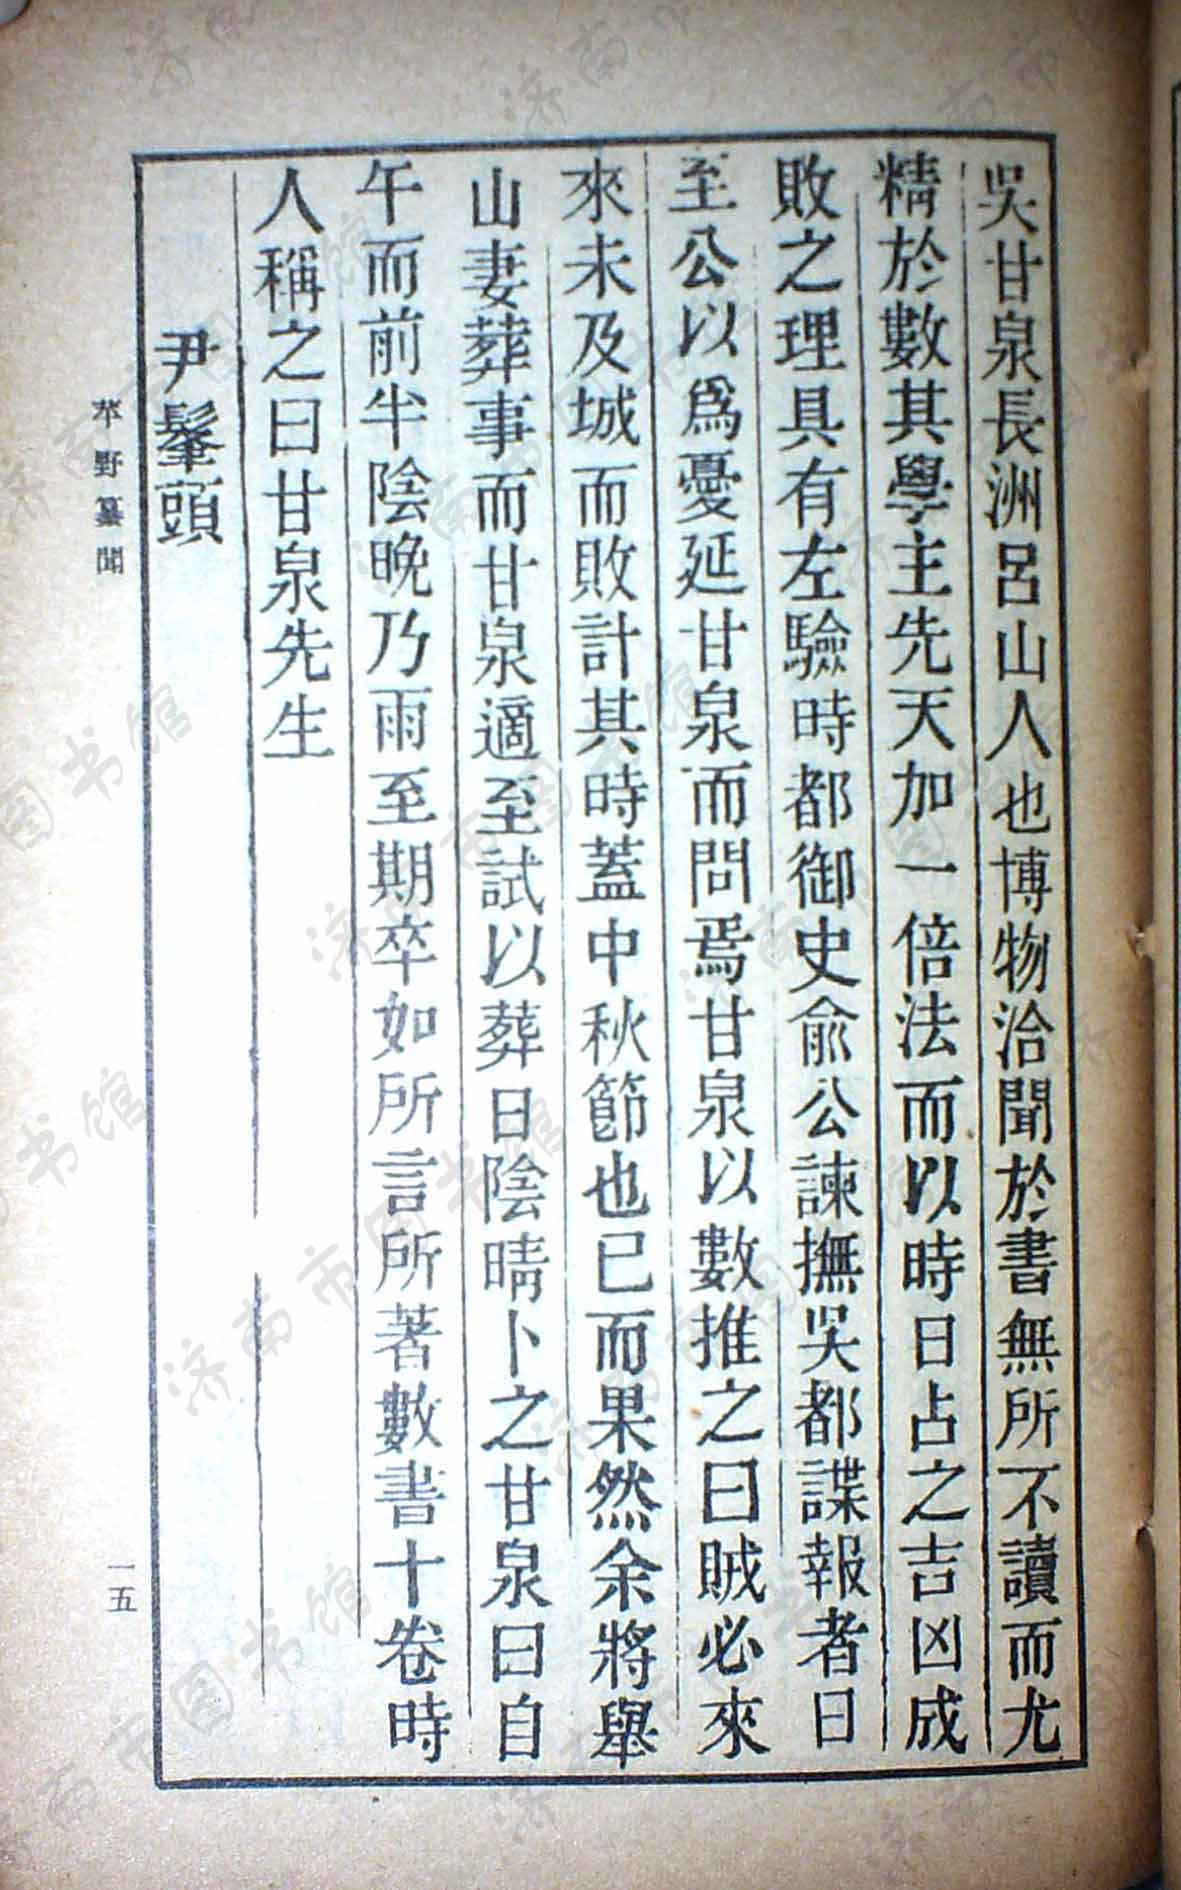 吳甘泉長洲呂山人也博物洽聞於書無所不讀而尤
精於數其學主先天加一倍法而以時日占之吉凶成
敗之理具有左驗時都御史俞公諫撫吳都諜報者日
至公以爲憂延甘泉而問焉甘泉以數推之曰賊必來
來未及城而敗計其時蓋中秋節也已而果然余將舉
山妻葬事而甘泉適至試以葬日陰晴卜之甘泉曰自
午而前半陰晚乃雨至期卒如所言所著數書十卷時
人稱之曰甘泉先生
尹鬅頭
苹野纂聞
一五
济南市图书馆